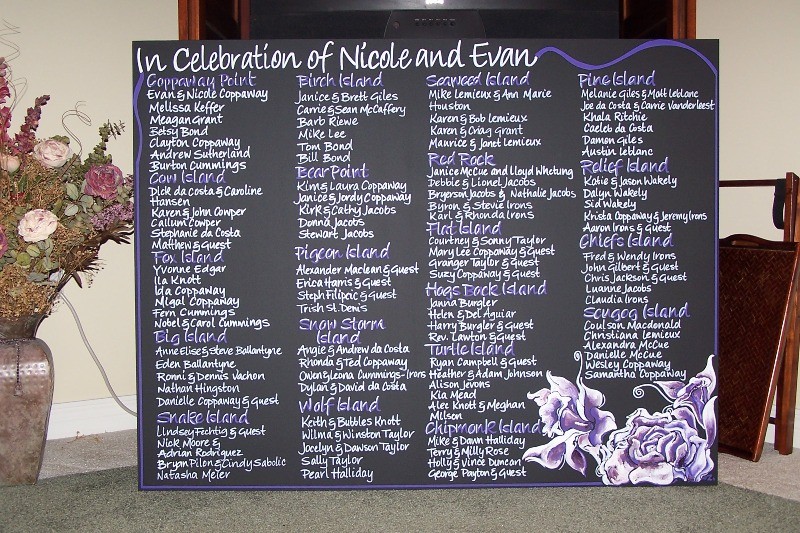 In Celebration of Nicole and Evan
Coppaway Point
Evan & Nicole Coppaway
Melissa Keffer
Meagan Grant
Betsy Bond
Clayton Coppaway
Andrew Sutherland
Burton Cummings
Cow Island
Dick da Costa & Caroline
Hansen
Karen & John Cowper
Callum Cowper
Stephanie da Costa
Matthew & Guest
Fox Island
Yvonne Edgar
Ila Knott
Ida Coppaway
Migal Coppaway
Fern Cummings
Nobel & Carol Cummings
Big Island
Anne Elise & Steve Ballantyne
Eden Ballantyne
Ronni & Dennis Vachon
Nathan Hingston
Danielle Coppaway & Guest
Snake Island
Lindsey Fechtig & Guest
Nick Moore &
Adrian Rodriguez
Bryan Pilon & Cindy Sabolic
Natasha Meier
Birch Island
Janice & Brett Giles
Carrie & Sean McCaffery
Barb Riewe
Mike Lee
Tom Bond
Bill Bond
Bear Point
Kim & Laura Coppaway
Janice & Jordy Coppaway
Kirk & Cathy Jacobs
Donna Jacobs
Stewart Jacobs
Pigeon Island
Alexander Maclean & Guest
Erica Harris & Guest
Steph Filipcic & Guest
Trish St. Denis
Snow Storm
Island
Angie & Andrew da Costa
Rhonda & Ted Coppaway
Owen & Leona Cummings-Irons
Dylan & David da Costa
Wolf Island
Keith & Bubbles Knott
Wilma & Winston Taylor
Jocelyn & Dawson Taylor
Sally Taylor
Pearl Halliday
Seaweed Island
Mike Lemieux & Ann Marie
Houston
Karen & Bob Lemieux
Karen & Craig Grant
Maurice & Janet Lemieux
Red Rock
Janice McCue and Lloyd Whetung
Debbie & Lionel Jacobs
Bryerson Jacobs & Nathalie Jacobs
Byron & Stevie Irons
Karl & Rhonda Irons
Flat Island
Courtney & Sonny Taylor
Mary Lee Coppaway & Guest
Granger Taylor & Guest
Suzy Coppaway & Guest
Hogs Back Island
Janna Burgler
Helen & Del Aguiar
Harry Burgler & Guest
Rev. Lawton & Guest
Turtle Island
Ryan Campbell & Guest
Heather & Adam Johnson
Alison Jevons
Kia Mead
Alec Knott & Meghan
Milson
Chipmonk Island
Mike & Dawn Halliday
Terry & Milly Rose
Holly & Vince Duncan
George Poyton & Guest
Pine Island
Melanie Giles & Matt leblanc
Joe da Costa & Carrie Vanderleest
Khala Ritchie
Caeleb da Costa
Damon Giles
Austin leblanc
Relief Island
Katie & Jason Wakely
Dalyn Wakely
Sid Wakely
Krista Coppaway & Jeremy Irons
Aaron Irons & Guest
Chiefs Island
Fred & Wendy Irons
John Gilbert & Guest
Chris Jackson & Guest
Luanne Jacobs
Claudia Irons
Scugog Island
Coulson Macdonald
Christiana Lemieux
Alexandra McCue
Danielle McCue
Wesley Coppaway
Samantha Coppaway